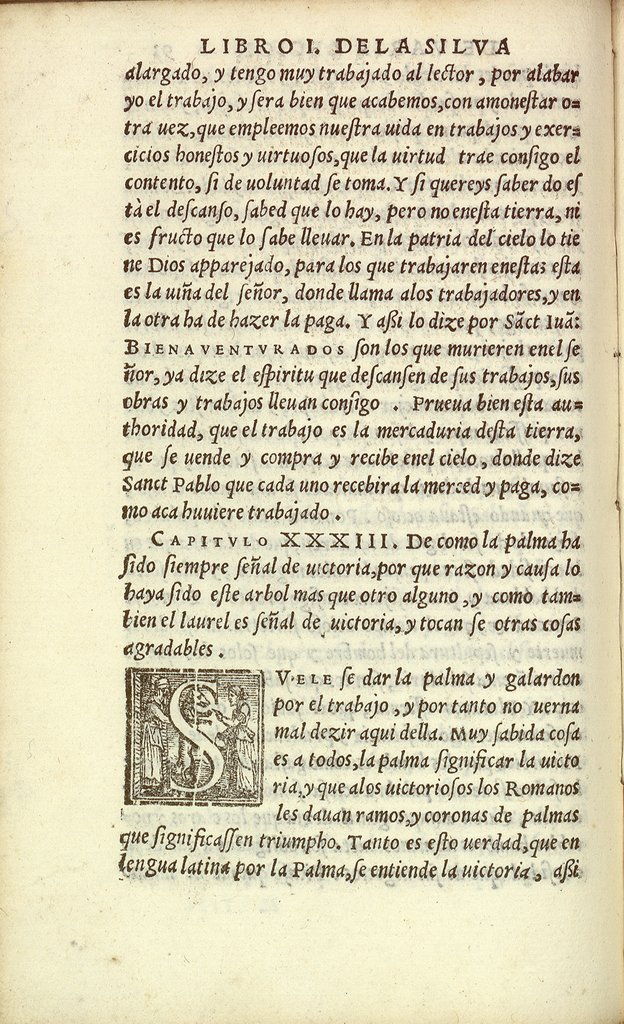 LIBRO I. DELA SILVA
alargado, y tengo muy trabajado al lector, por alabar
yo el trabajo, y sera bien que acabemos, con amonestar o=
tra uez, que empleemos nuestra uida en trabajos y exer=
cicios honestos y uirtuosos, que la uirtud trae consigo el
contento, si de voluntad se toma. Y si quereys saber do es
tà el descanso, sabed que lo hay, pero no enesta tierra, ni
es fructo que lo sabe lleuar. En la patria del cielo lo tie
ne Dios apparejado, para los que trabajaren enesta: esta
es la uiña del señor, donde llama alos trabajadores, y en
la otra ha de hazer la paga. Y aßi lo dize por Sãct Iuã:
BIENAVENTVRADOS son los que murieren enel se
ñor, ya dize el espiritu que descansen de sus trabajos, sus
obras y trabajos lleuan consigo . Prueua bien esta au=
thoridad, que el trabajo es la mercaduria desta tierra,
que se uende y compra y recibe enel cielo, donde dize
Sanct Pablo que cada uno recebira la merced y paga, co=
mo aca huuiere trabajado .
CAPITVLO XXXIII. De como la palma ha
sido siempre señal de uictoria, por que razon y causa lo
haya sido este arbol mas que otro alguno, y como tam=
bien el laurel es señal de uictoria, y tocan se otras cosas
agradables .
SVELE se dar la palma y galardon
por el trabajo, y por tanto no uerna
mal dezir aqui della. Muy sabida cosa
es a todos, la palma significar la uicto
ria, y que alos uictoriosos los Romanos
les dauan ramos, y coronas de palmas
que significassen triumpho. Tanto es esto uerdad, que en
lengua latina por la Palma, se entiende la uictoria, aßi